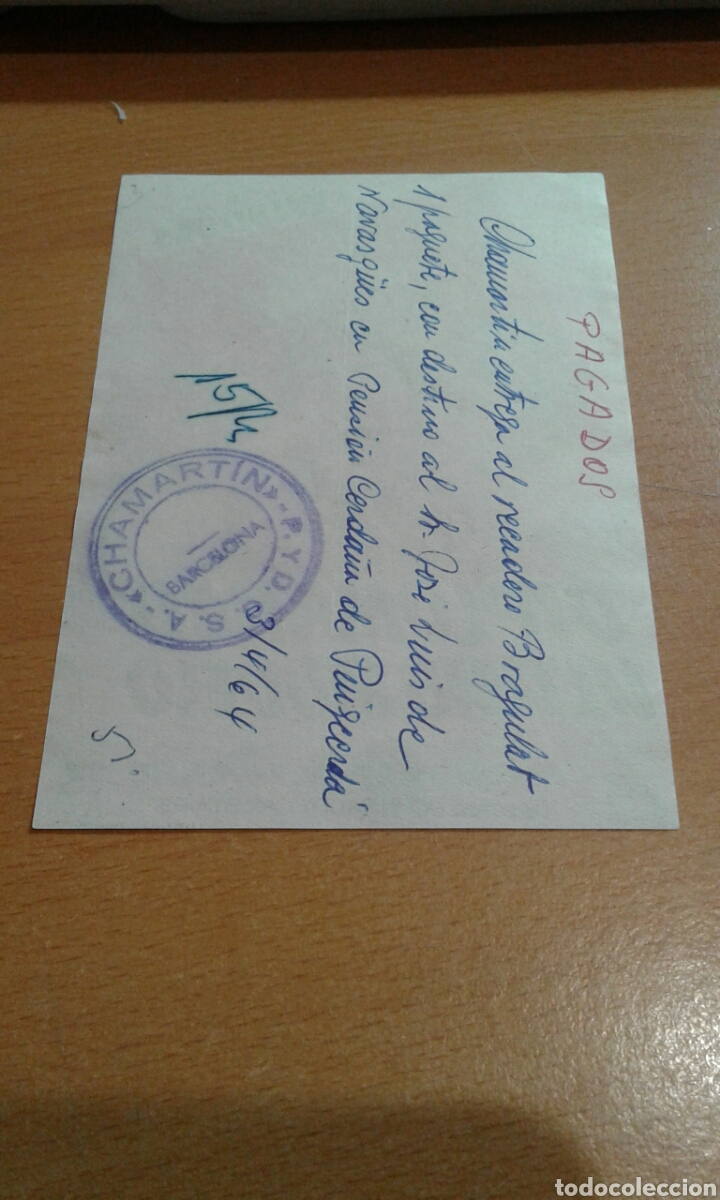 PAGADOS
Chamartin entrega al recadero Bragulat
1 paquete, con destino al Sr. José Luis de
Navasqües en Pensión Cerdaña de Puigcerdá
15/
3/4/64
«CHAMARTÍN» - P. Y D. C. S. A. -
BARCELONA
5'
todocoleccion